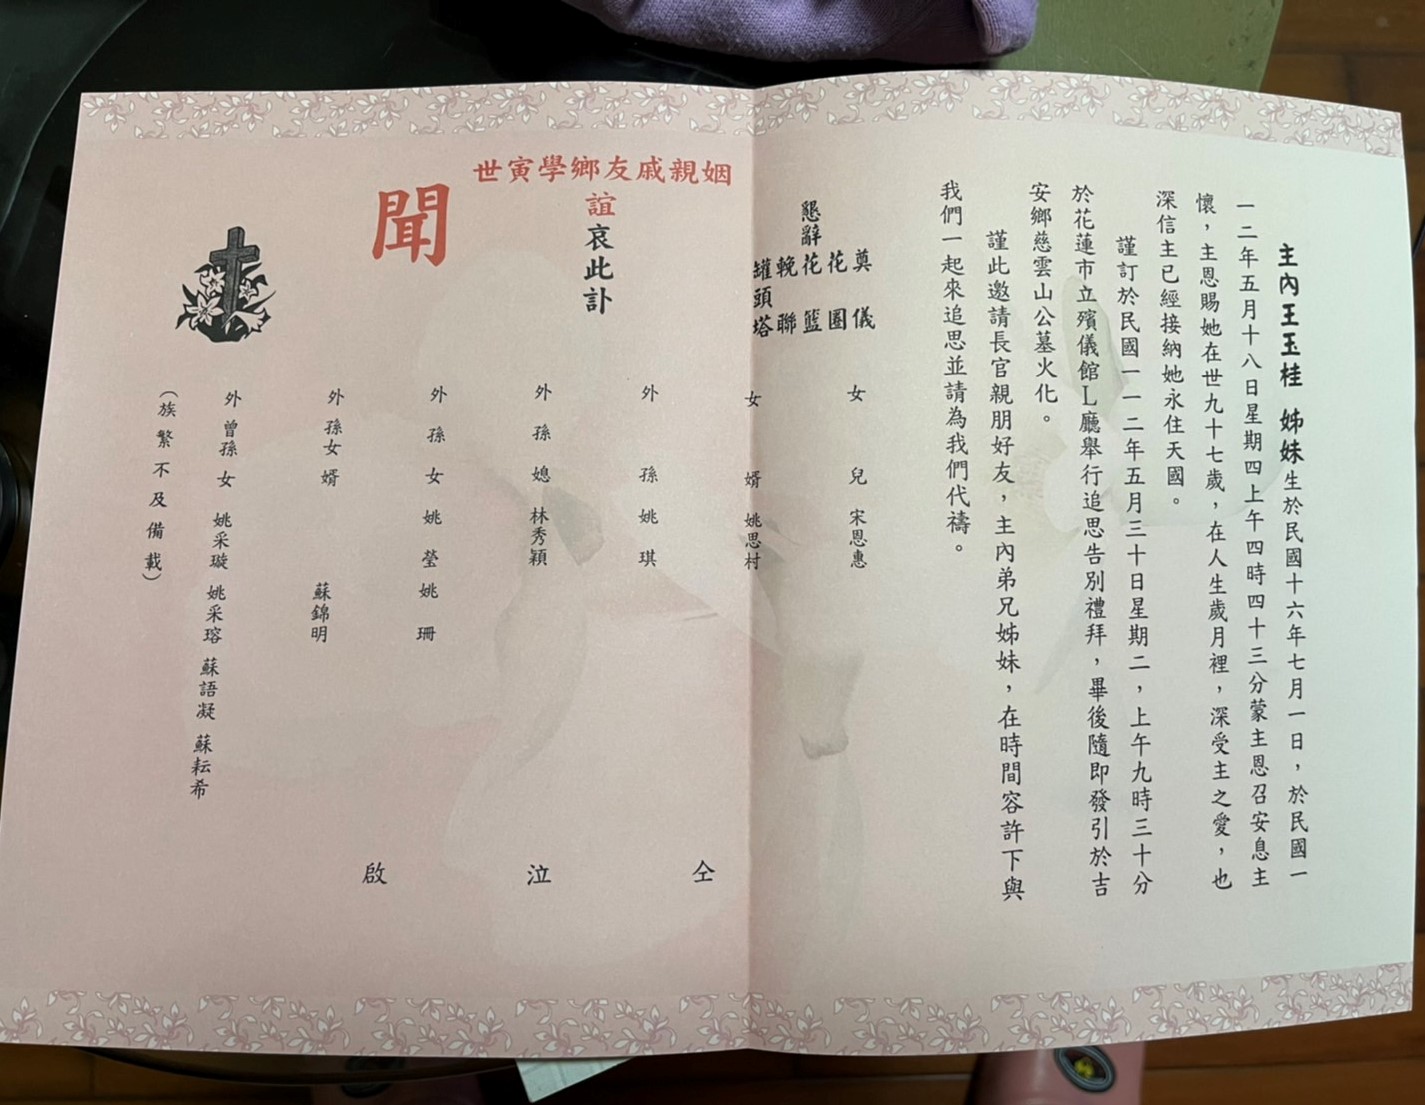 主內王玉桂 姊妹生於民國十六年七月一日，於民國一
一二年五月十八日星期四上午四時四十三分蒙主恩召安息主
懷，主恩賜她在世九十七歲，在人生歲月裡，深受主之愛，也
深信主已經接納她永住天國。
謹訂於民國一一二年五月三十日星期二，上午九時三十分
於花蓮市立殯儀館L廳舉行追思告別禮拜，畢後隨即發引於吉
安鄉慈雲山公墓火化。
謹此邀請長官親朋好友，主內弟兄姊妹，在時間容許下與
我們一起來追思並請為我們代禱。
懇辭
奠儀
花圈
花籃
輓聯
罐頭塔
姻親戚友鄉學寅世
誼哀此訃
聞
女兒 宋恩惠
女婿 姚思村
外孫 姚琪
外孫媳 林秀穎
外孫女 姚瑩 姚珊
外孫女婿 蘇錦明
外曾孫女 姚采璇 姚采瑢 蘇語凝 蘇耘希
（族繁不及備載）
仝泣啟